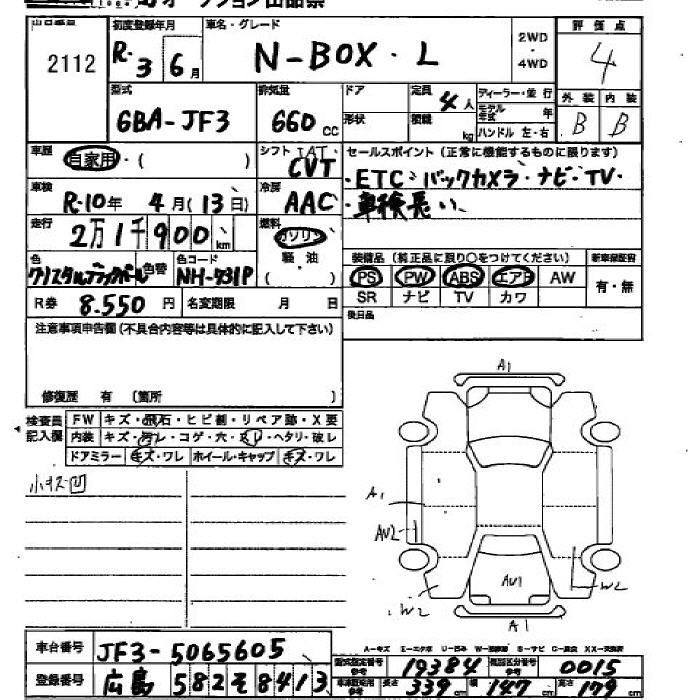 オークション出品票
出品番号 2112
初度登録年月 R-3 6月
車名・グレード N-BOX・L
2WD・4WD
評価点 4
型式 6BA-JF3
排気量 660 CC
ドア
形状
定員 4人
積載 kg
ディーラー・並行
モデル年式 年
ハンドル 左・右
外装 B
内装 B
車歴 自家用・( )
シフト IAT CVT
セールスポイント(正常に機能するものに限ります)
・ETC・バックカメラ・ナビ・TV・
・車検長い、
車検 R-10年 4月(13日)
冷房 AAC
走行 2万1千900km
燃料 ガソリン
軽・油
( )
色 クリスタルブラックパール 色替
色コード NH-731P
装備品(純正品に限り○をつけてください)
新車保証書
PS PW ABS エアB AW
SR ナビ TV カワ
有・無
R券 8.550円
名変期限 月 日
後日品
注意事項申告欄(不具合内容等は具体的に記入して下さい)
修復歴 有 (箇所 )
検査員記入欄
FW キズ・飛石・ヒビ割・リペア跡・X要
内装 キズ・汚レ・コゲ・穴・スレ・ヘタリ・破レ
ドアミラー キズ・ワレ ホイール・キャップ キズ・ワレ
小キズ凹
A1
A1
AU2
W2
AU1
W2
A1
A-キズ E-エクボ U-凹み W-補修跡 S-サビ C-腐食 XX-交換済
車台番号 JF3-5065605
型式指定番号参考 19384
類別区分番号参考 0015
登録番号 広島 582 そ 8413
車検証寸法参考 長さ 339cm 幅 147cm 高さ 179cm